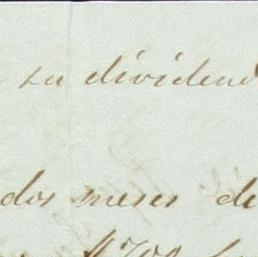 su dividend
dos meses de
$700